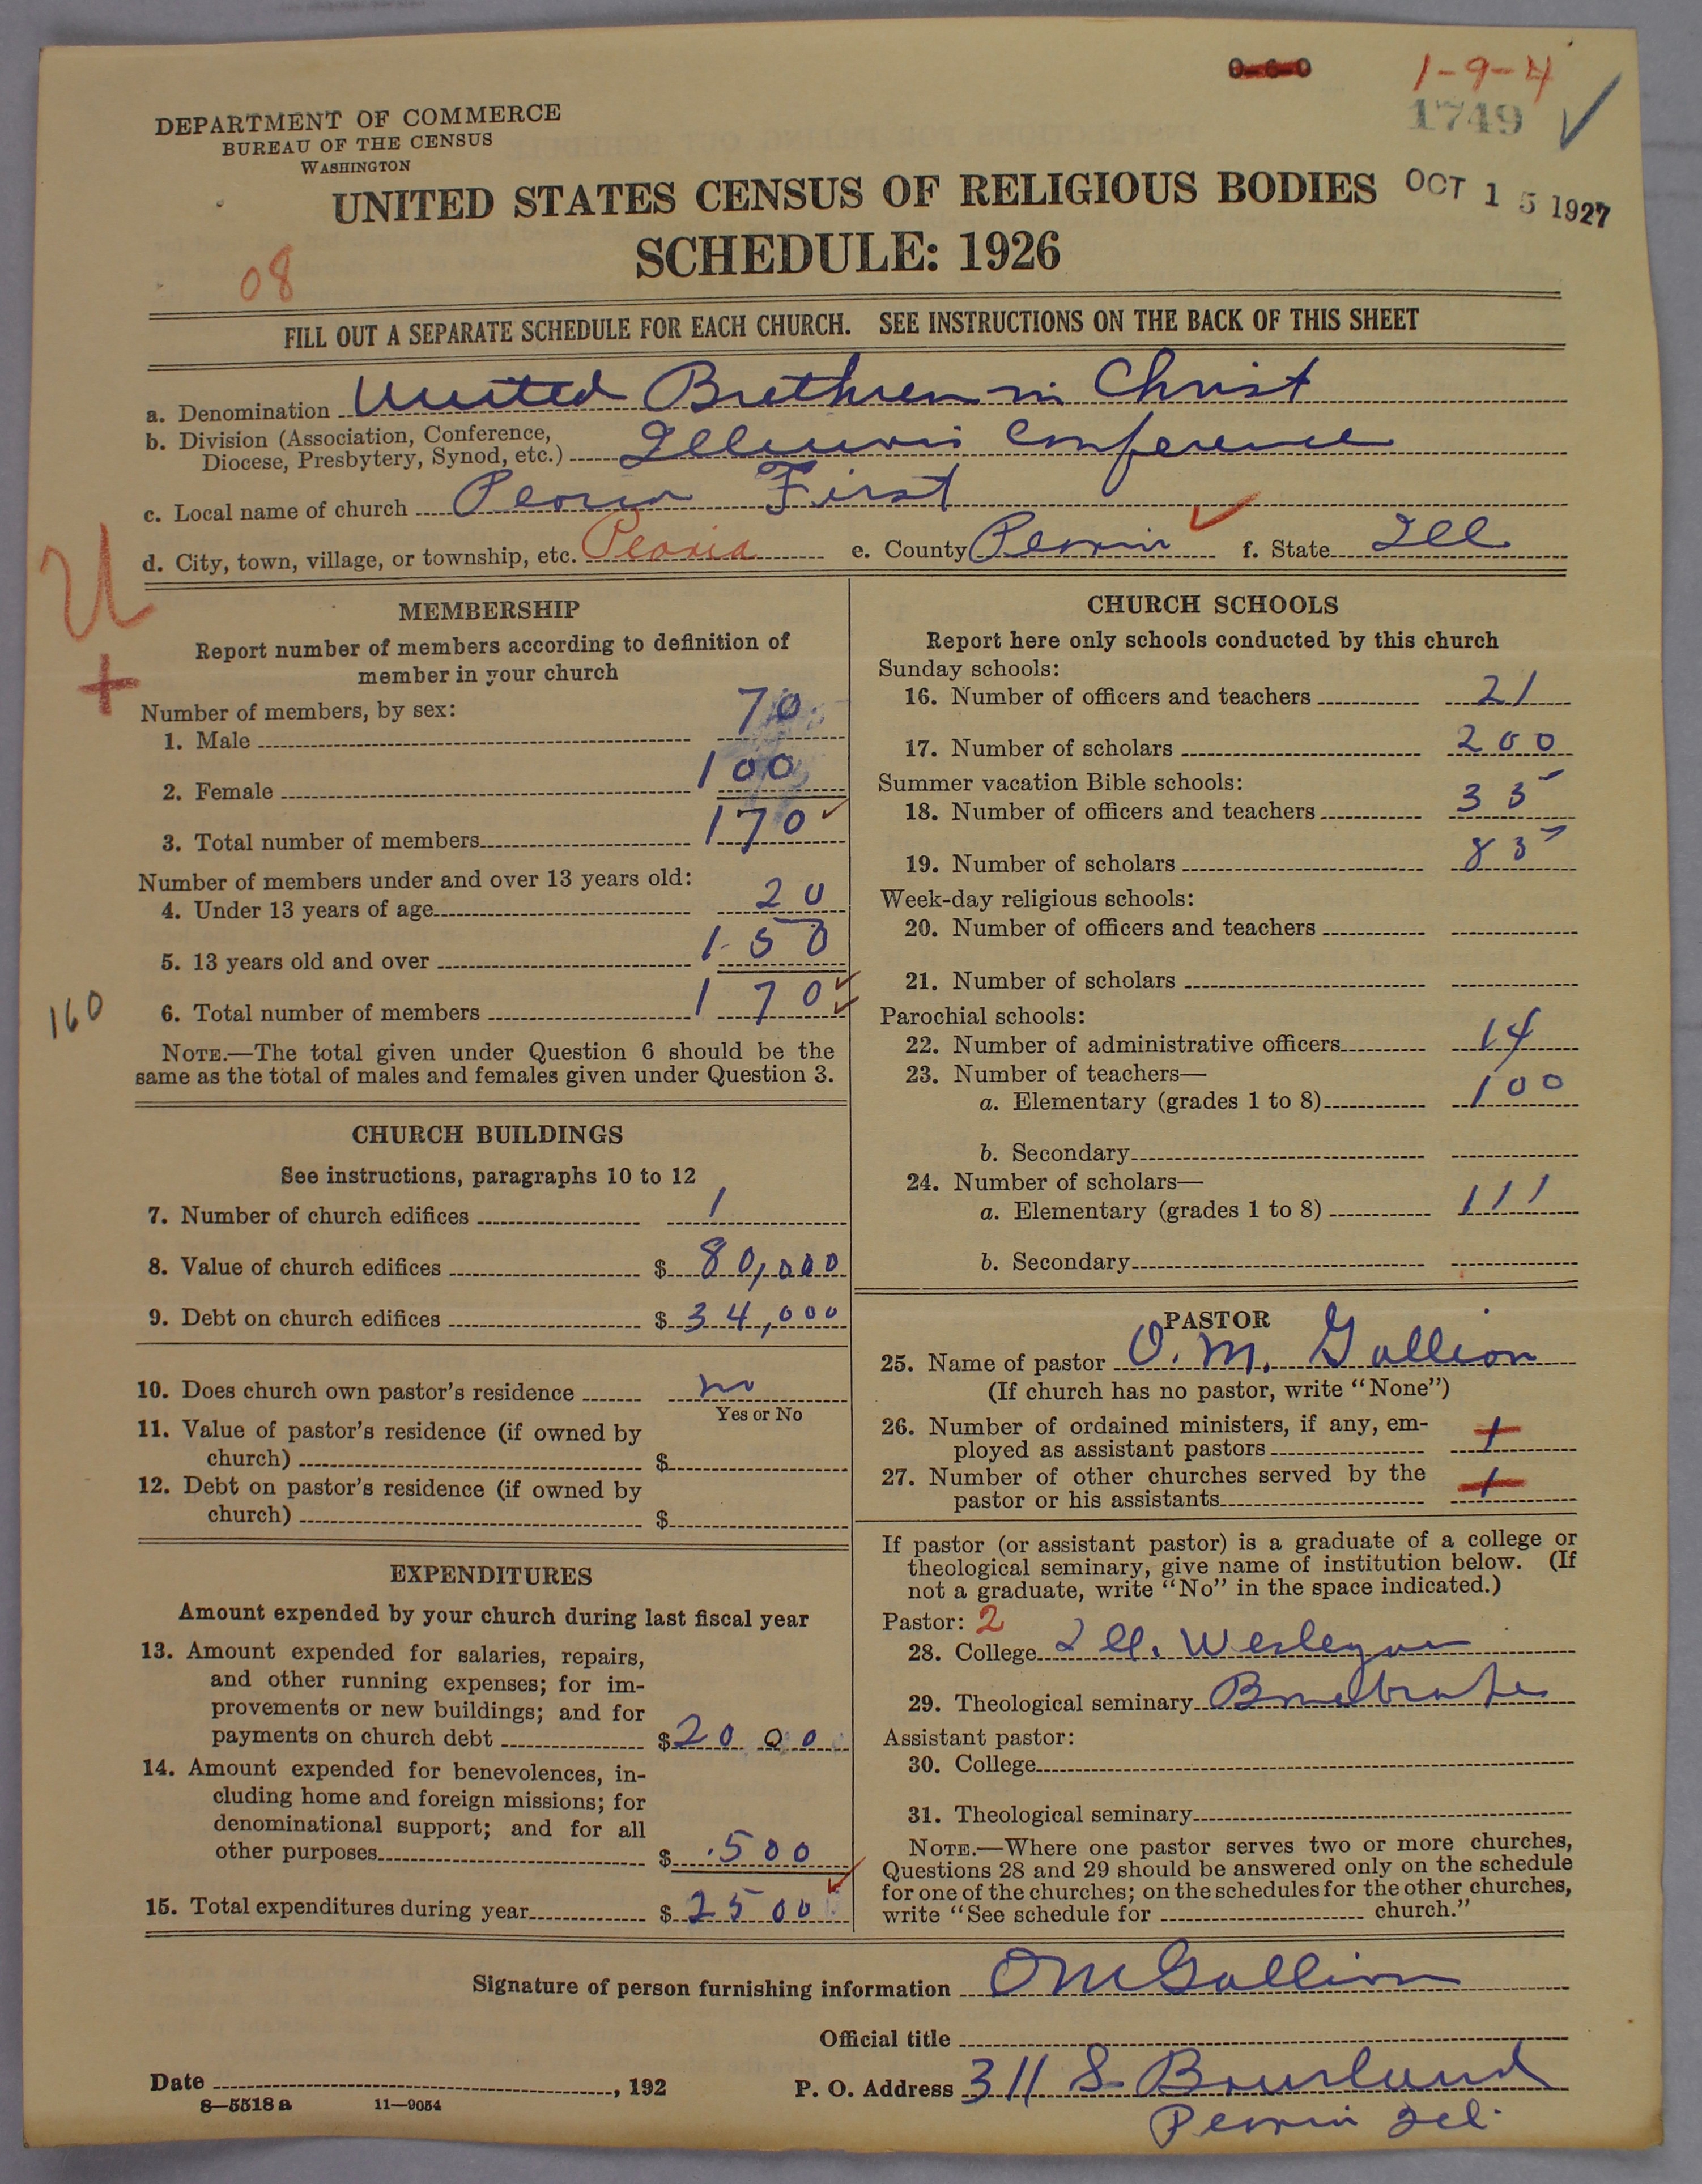 0-6-0
1-9-4
1749
DEPARTMENT OF COMMERCE
BUREAU OF THE CENSUS
WASHINGTON
UNITED STATES CENSUS OF RELIGIOUS BODIES
OCT 15 1927
SCHEDULE: 1926
08
FILL OUT A SEPARATE SCHEDULE FOR EACH CHURCH. SEE INSTRUCTIONS ON THE BACK OF THIS SHEET
a. Denomination United Brethren in Christ
b. Division (Association, Conference,
Diocese, Presbytery, Synod, etc.) Illinois Conference
c. Local name of church Peoria First
d. City, town, village, or township, etc. Peoria e. County Peoria f. State Ill
U
+
MEMBERSHIP
Report number of members according to definition of
member in your church
Number of members, by sex:
1. Male 70
2. Female 100
3. Total number of members 170
Number of members under and over 13 years old:
4. Under 13 years of age 20
5. 13 years old and over 150
6. Total number of members 170
160
NOTE.—The total given under Question 6 should be the
same as the total of males and females given under Question 3.
CHURCH BUILDINGS
See instructions, paragraphs 10 to 12
7. Number of church edifices 1
8. Value of church edifices $ 80,000
9. Debt on church edifices $ 34,000
10. Does church own pastor's residence no
Yes or No
11. Value of pastor's residence (if owned by
church) $
12. Debt on pastor's residence (if owned by
church) $
EXPENDITURES
Amount expended by your church during last fiscal year
13. Amount expended for salaries, repairs,
and other running expenses; for im-
provements or new buildings; and for
payments on church debt $ 2000
14. Amount expended for benevolences, in-
cluding home and foreign missions; for
denominational support; and for all
other purposes $ 500
15. Total expenditures during year $ 2500
CHURCH SCHOOLS
Report here only schools conducted by this church
Sunday schools:
16. Number of officers and teachers 21
17. Number of scholars 200
Summer vacation Bible schools:
18. Number of officers and teachers 35
19. Number of scholars 85
Week-day religious schools:
20. Number of officers and teachers
21. Number of scholars
Parochial schools:
22. Number of administrative officers 14
23. Number of teachers—
a. Elementary (grades 1 to 8) 100
b. Secondary
24. Number of scholars—
a. Elementary (grades 1 to 8) 111
b. Secondary
PASTOR
25. Name of pastor O. M. Gallion
(If church has no pastor, write "None")
26. Number of ordained ministers, if any, em-
ployed as assistant pastors 1
27. Number of other churches served by the
pastor or his assistants 1
If pastor (or assistant pastor) is a graduate of a college or
theological seminary, give name of institution below. (If
not a graduate, write "No" in the space indicated.)
Pastor: 2
28. College Ill. Wesleyan
29. Theological seminary Bonebrake
Assistant pastor:
30. College
31. Theological seminary
NOTE.—Where one pastor serves two or more churches,
Questions 28 and 29 should be answered only on the schedule
for one of the churches; on the schedules for the other churches,
write "See schedule for church."
Signature of person furnishing information O M Gallion
Official title
Date , 192
P. O. Address 311 S. Bourland
Peoria Ill.
8—5518 a 11—9054